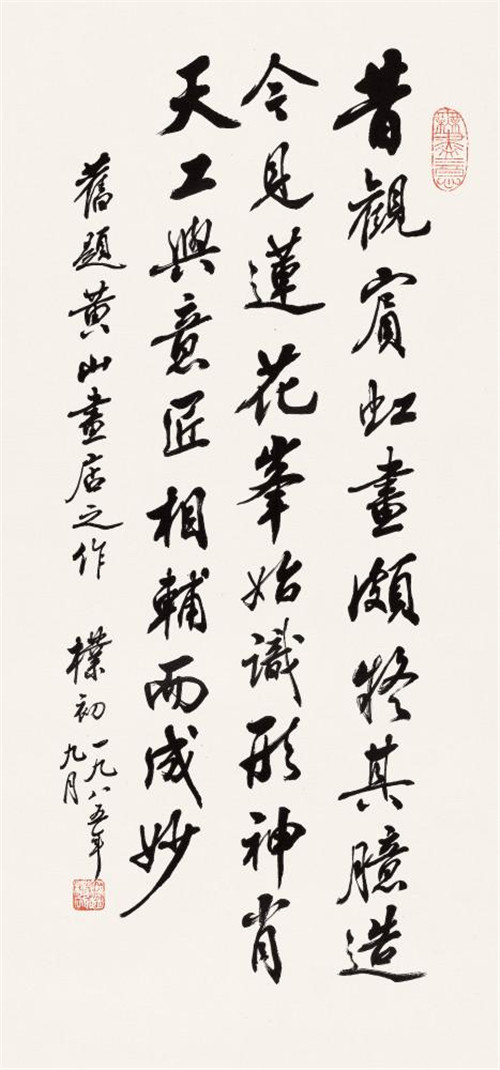 昔觀賓虹畫頗疑其臆造
今見蓮花峯始識形神肖
天工與意匠相輔而成妙
舊題黄山畫店之作 樸初 一九八五年
九月